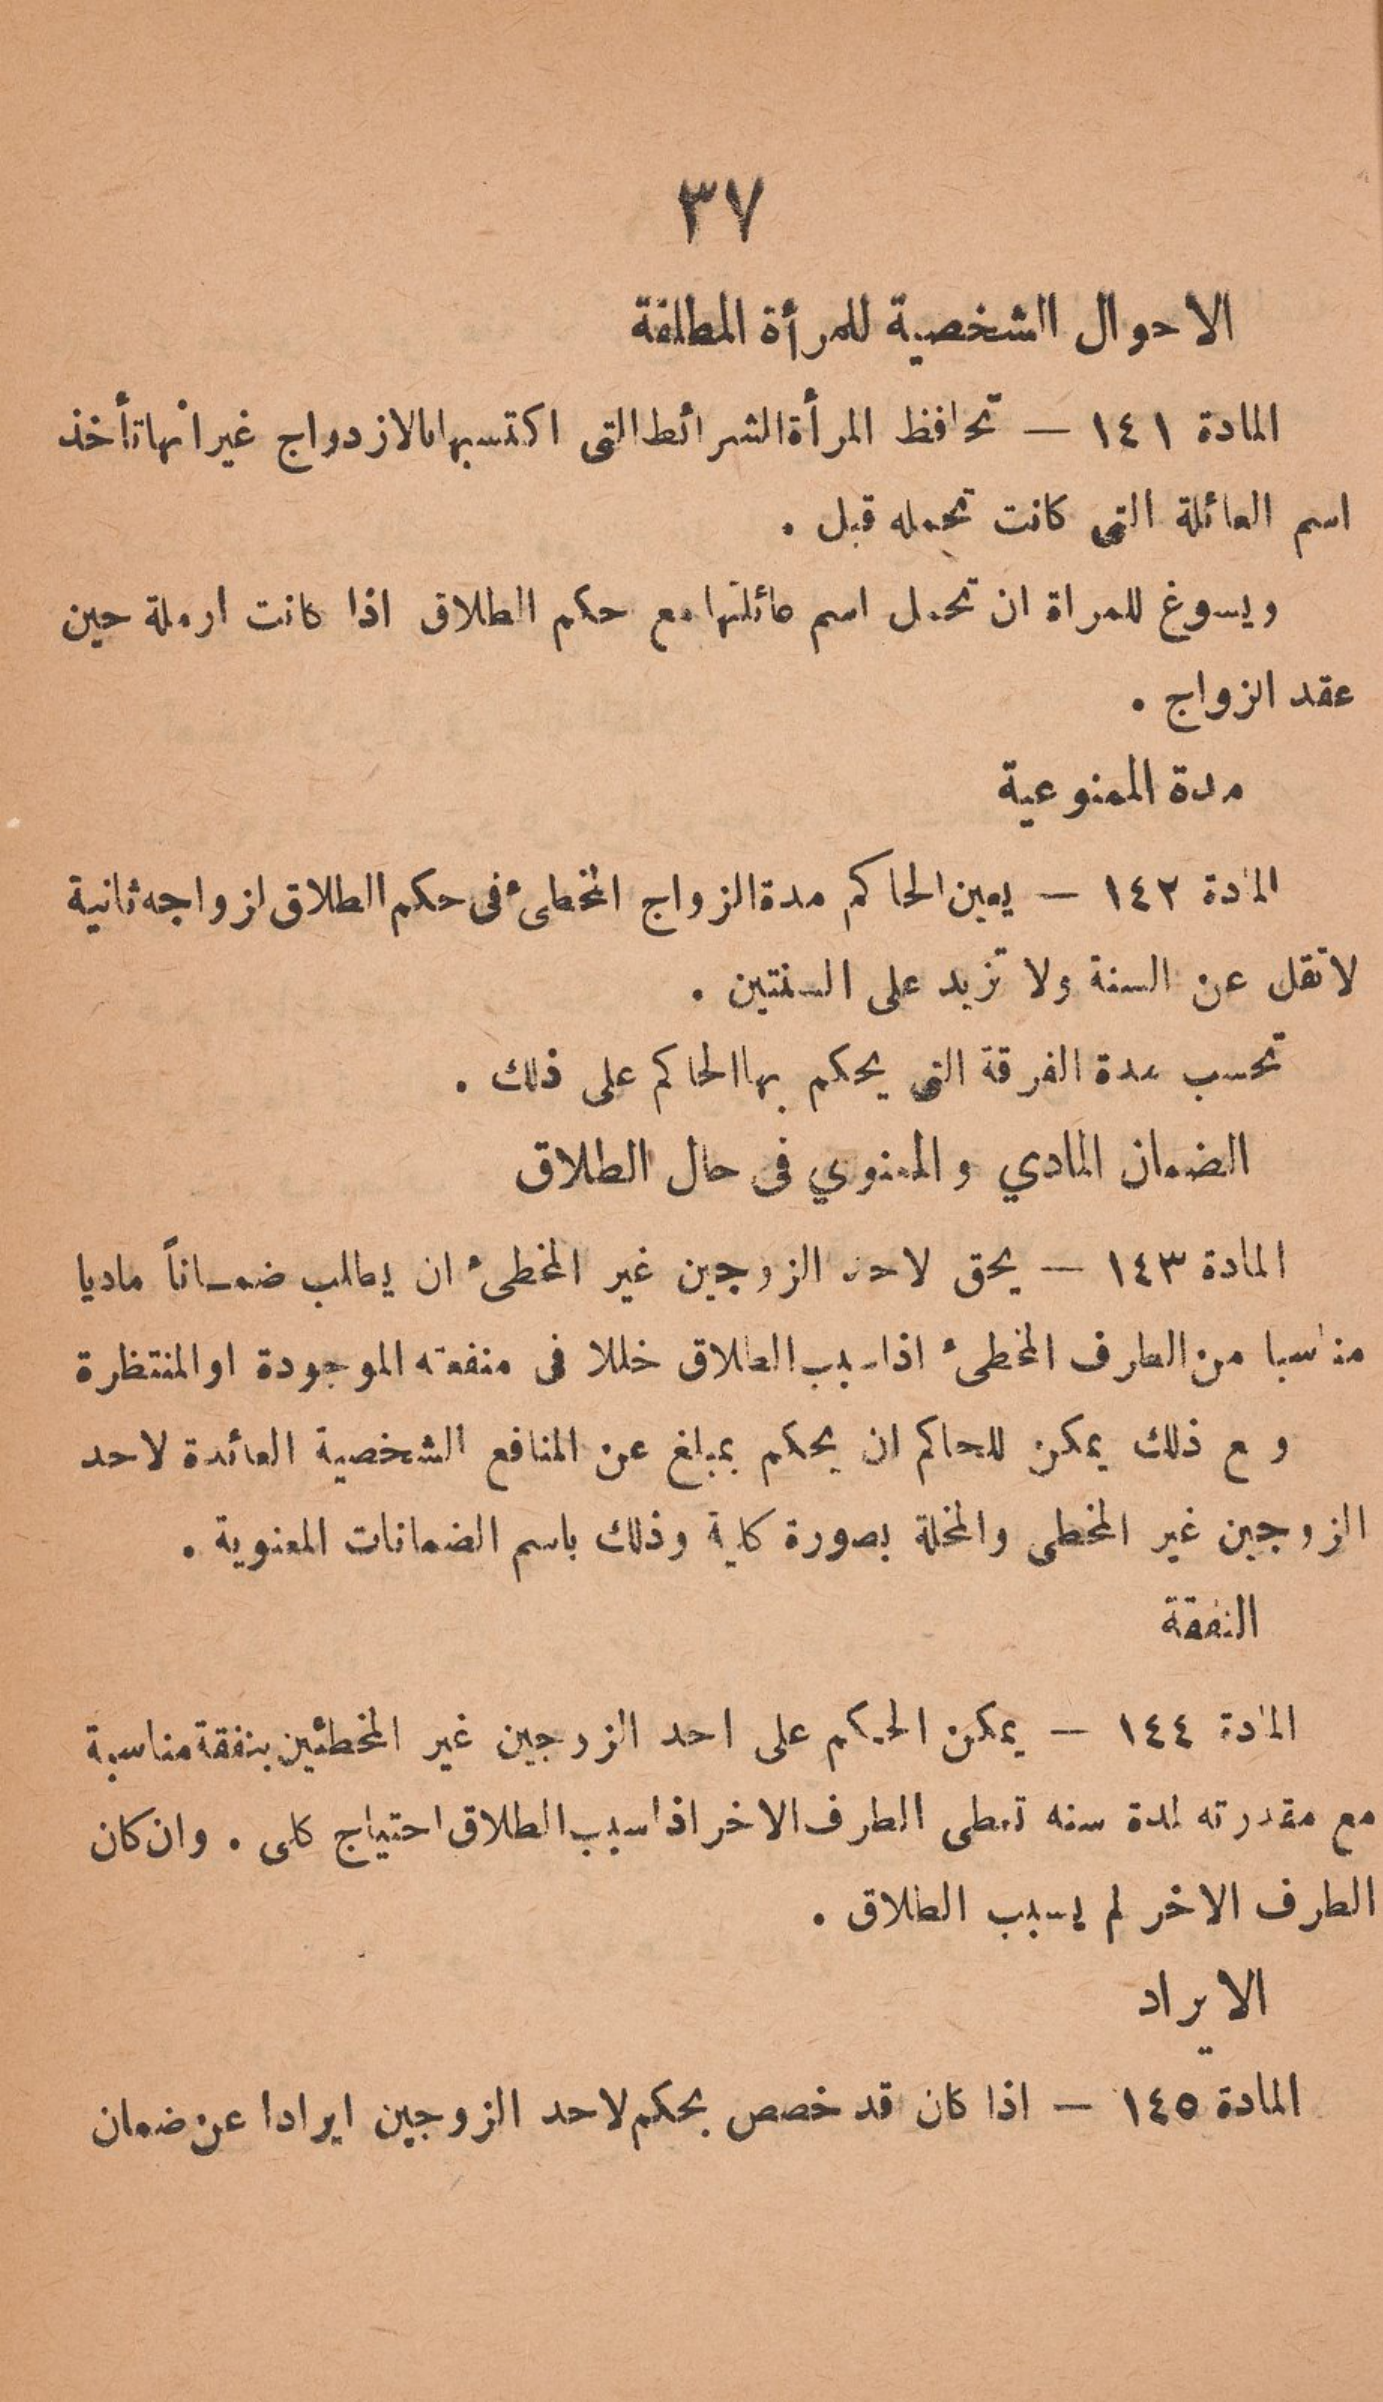 ٣٧
الاحوال الشخصية للمرأة المطلقة
المادة ١٤١ — تحافظ المرأة الشرائط التى اكتسبها بالازدواج غير انها تأخذ
اسم العائلة التى كانت تحمله قبل .
ويسوغ للمراة ان تحمل اسم عائلتها مع حكم الطلاق اذا كانت ارملة حين
عقد الزواج .
مدة الممنوعية
المادة ١٤٢ — يعين الحاكم مدة الزواج المخطىء فى حكم الطلاق لزواجه ثانية
لا تقل عن السنة ولا تزيد على السنتين .
تحسب مدة الفرقة التى يحكم بها الحاكم على ذلك .
الضمان المادي والمعنوي فى حال الطلاق
المادة ١٤٣ — يحق لاحد الزوجين غير المخطىء ان يطلب ضمـاناً ماديا
مناسبا من الطرف المخطىء اذا سبب الطلاق خللا فى منفعته الموجودة او المنتظرة
ومع ذلك يمكن للحاكم ان يحكم بمبلغ عن المنافع الشخصية العائدة لاحد
الزوجين غير المخطى والمخلة بصورة كلية وذلك باسم الضمانات المعنوية .
النفقة
المادة ١٤٤ — يمكن الحكم على احد الزوجين غير المخطئين بنفقة مناسبة
مع مقدرته لمدة سنه تعطى الطرف الاخر اذا سبب الطلاق احتياج كلى . وان كان
الطرف الاخر لم يسبب الطلاق .
الايراد
المادة ١٤٥ — اذا كان قد خصص بحكم لاحد الزوجين ايرادا عن ضمان